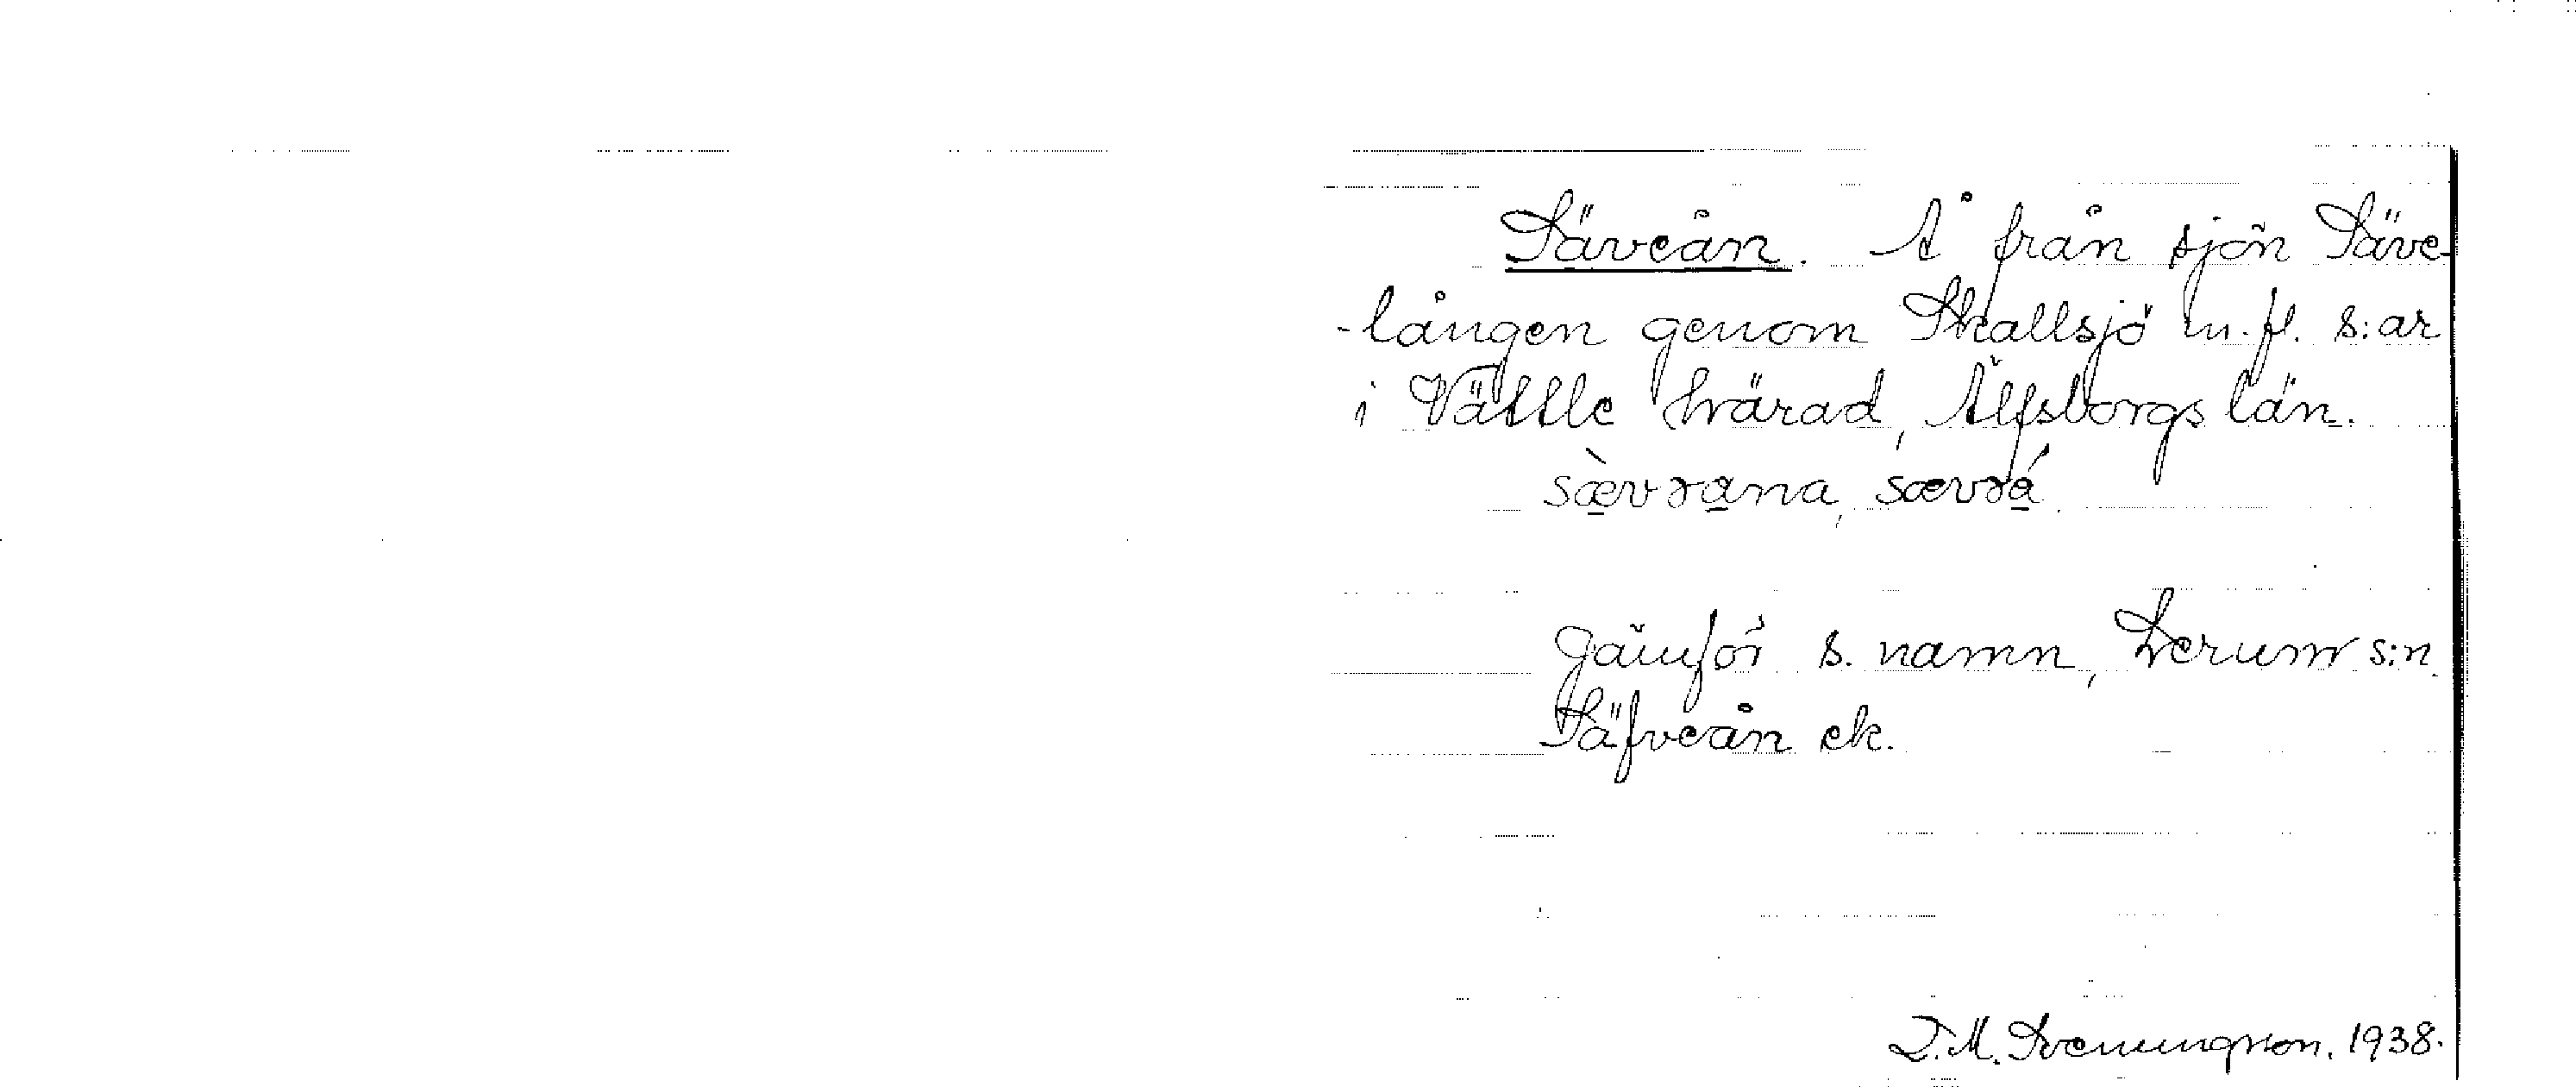 Säveån. Å från sjön Säve-
-lången genom Skallsjö m.fl. s:ar
i Vättle härad, Älfsborgs län.
sæ̀vəana, sævəá.
Jämför s. namn, Lerum s:n.
Säfveån ek.
D.M. Svenungson. 1938.